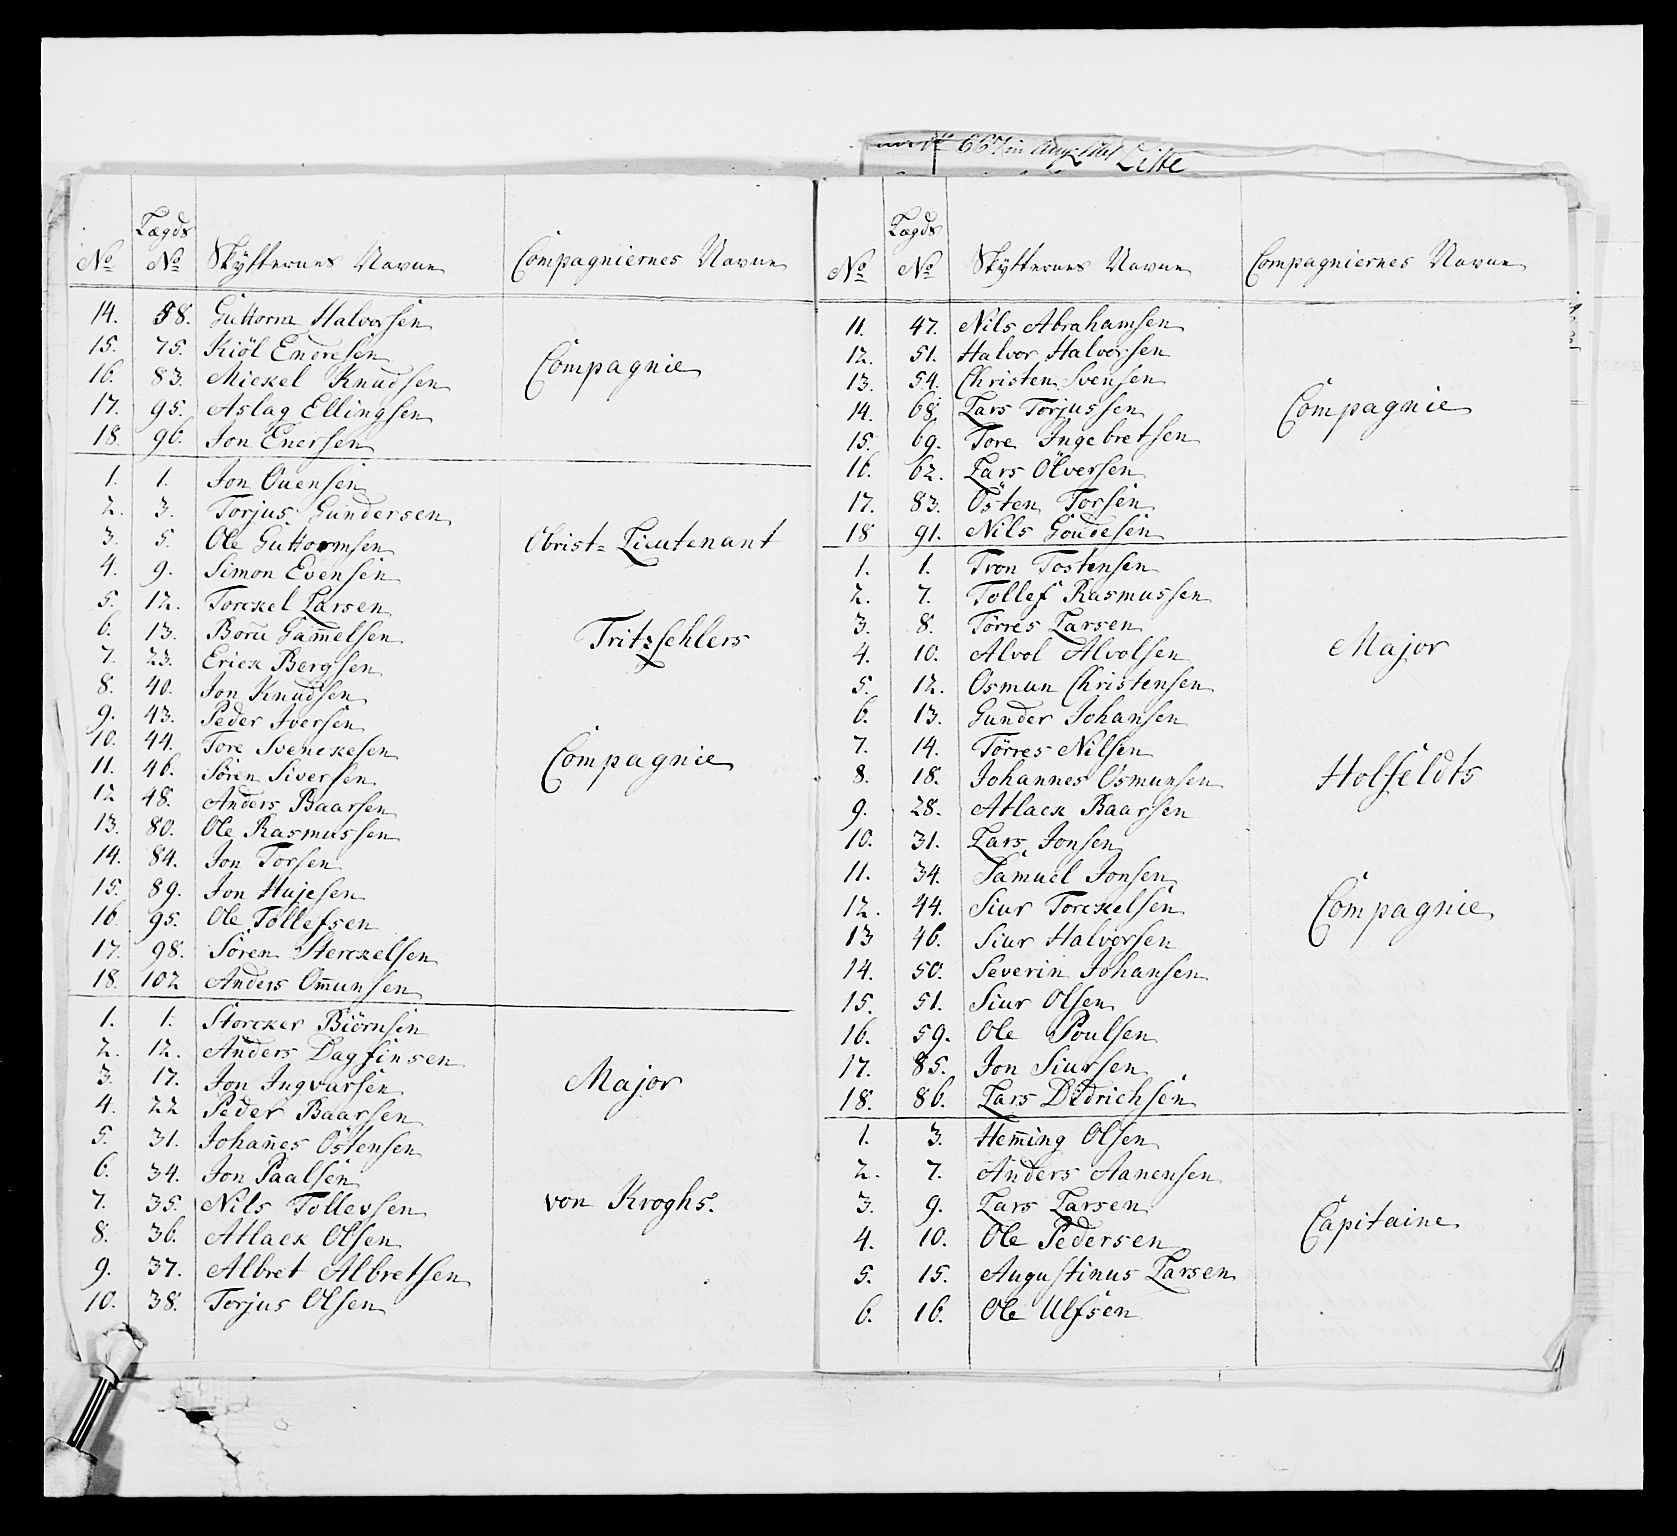 Liste
Lægds
No No Skytternes Navne Compagniernes Navne
14. 58. Guttorm Halvorsen
15. 75. Kiöl Endresen
16. 83. Mickel Knudsen Compagnie
17. 95. Aslag Ellingsen
18. 96. Jon Enersen
1. 1. Jon Ouensen
2. 3. Torjus Gundersen
3. 5. Ole Guttormsen Obrist= Lieutenant
4. 9. Simon Evensen
5. 12. Torckel Larsen
6. 13. Boru Gam̅elsen Tritzschlers
7. 23. Erick Bergsen
8. 40. Jon Knudsen
9. 43. Peder Iversen
10. 44. Tore Svenckesen Compagnie
11. 46. Sören Siversen
12 48. Anders Baarsen
13. 80. Ole Rasmussen
14. 84. Jon Torsen
15. 89. Jon Hujesen
16 95. Ole Tollefsen
17. 98. Sören Sterckelsen
18. 102 Anders Om̅unsen
1. 1. Storcker Biörnsen
2. 12. Anders Dagfinsen
3. 17. Jon Ingvarsen Major
4. 22 Peder Baarsen
5. 31. Johan̅es Östensen
6. 34. Jon Paalsen
7. 35. Nils Tollevsen von Kroghs.
8. 36. Atlack Olsen
9. 37. Albret Albretsen
10. 38. Torjus Olsen
Lægds
No No Skytternes Navne Compagniernes Navne
11. 47. Nils Abrahamsen
12. 51. Halvor Halvorsen
13. 54. Christen Svensen
14. 68. Lars Torjussen Compagnie
15. 69. Tore Ingebretsen
16. 62. Lars Olversen
17. 83. Östen Torsen
18 91. Nils Goudesen
1. 1. Tron Tostensen
2. 7. Tollef Rasmussen
3. 8. Törres Larsen
4. 10. Alvol Alvolsen Major
5. 12. Osmun Christensen
6. 13. Gunder Johansen
7. 14. Törres Nilsen
8. 18. Johannes Osmunsen Holfeldts
9. 28. Atlack Baarsen
10. 31. Lars Jonsen
11. 34. Samuel Jonsen
12. 44. Siur Torckelsen Compagnie
13 46. Siur Halvorsen
14. 50. Severin Johansen
15. 51. Siur Olsen
16. 59. Ole Poulsen
17. 85. Jon Siursen
18. 86. Lars Didrichsen
1. 3. Hem̅ing Olsen
2. 7. Anders Aanensen
3. 9. Lars Larsen Capitaine
4. 10. Ole Pedersen
5. 15. Augustinus Larsen
6. 16. Ole Ulfsen